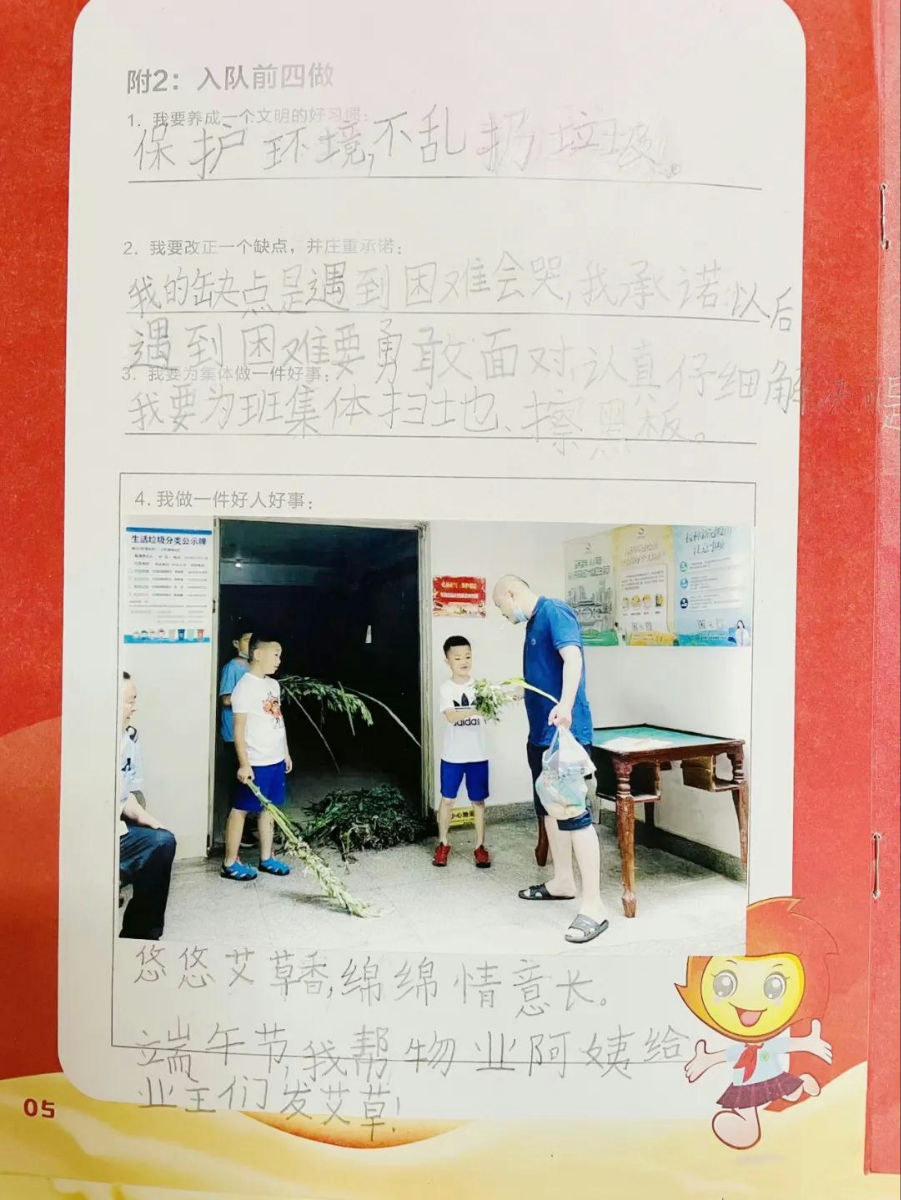 附2：入队前四做
1. 我要养成一个文明的好习惯：
保护环境,不乱扔垃圾。
2. 我要改正一个缺点，并庄重承诺：
我的缺点是遇到困难会哭,我承诺以后
遇到困难要勇敢面对,认真仔细解决
3. 我要为集体做一件好事：
我要为班集体扫地、擦黑板。
4. 我做一件好人好事：
生活垃圾分类公示牌
adidas
小心地滑
悠悠艾草香,绵绵情意长。
端午节,我帮物业阿姨给
业主们发艾草!
05